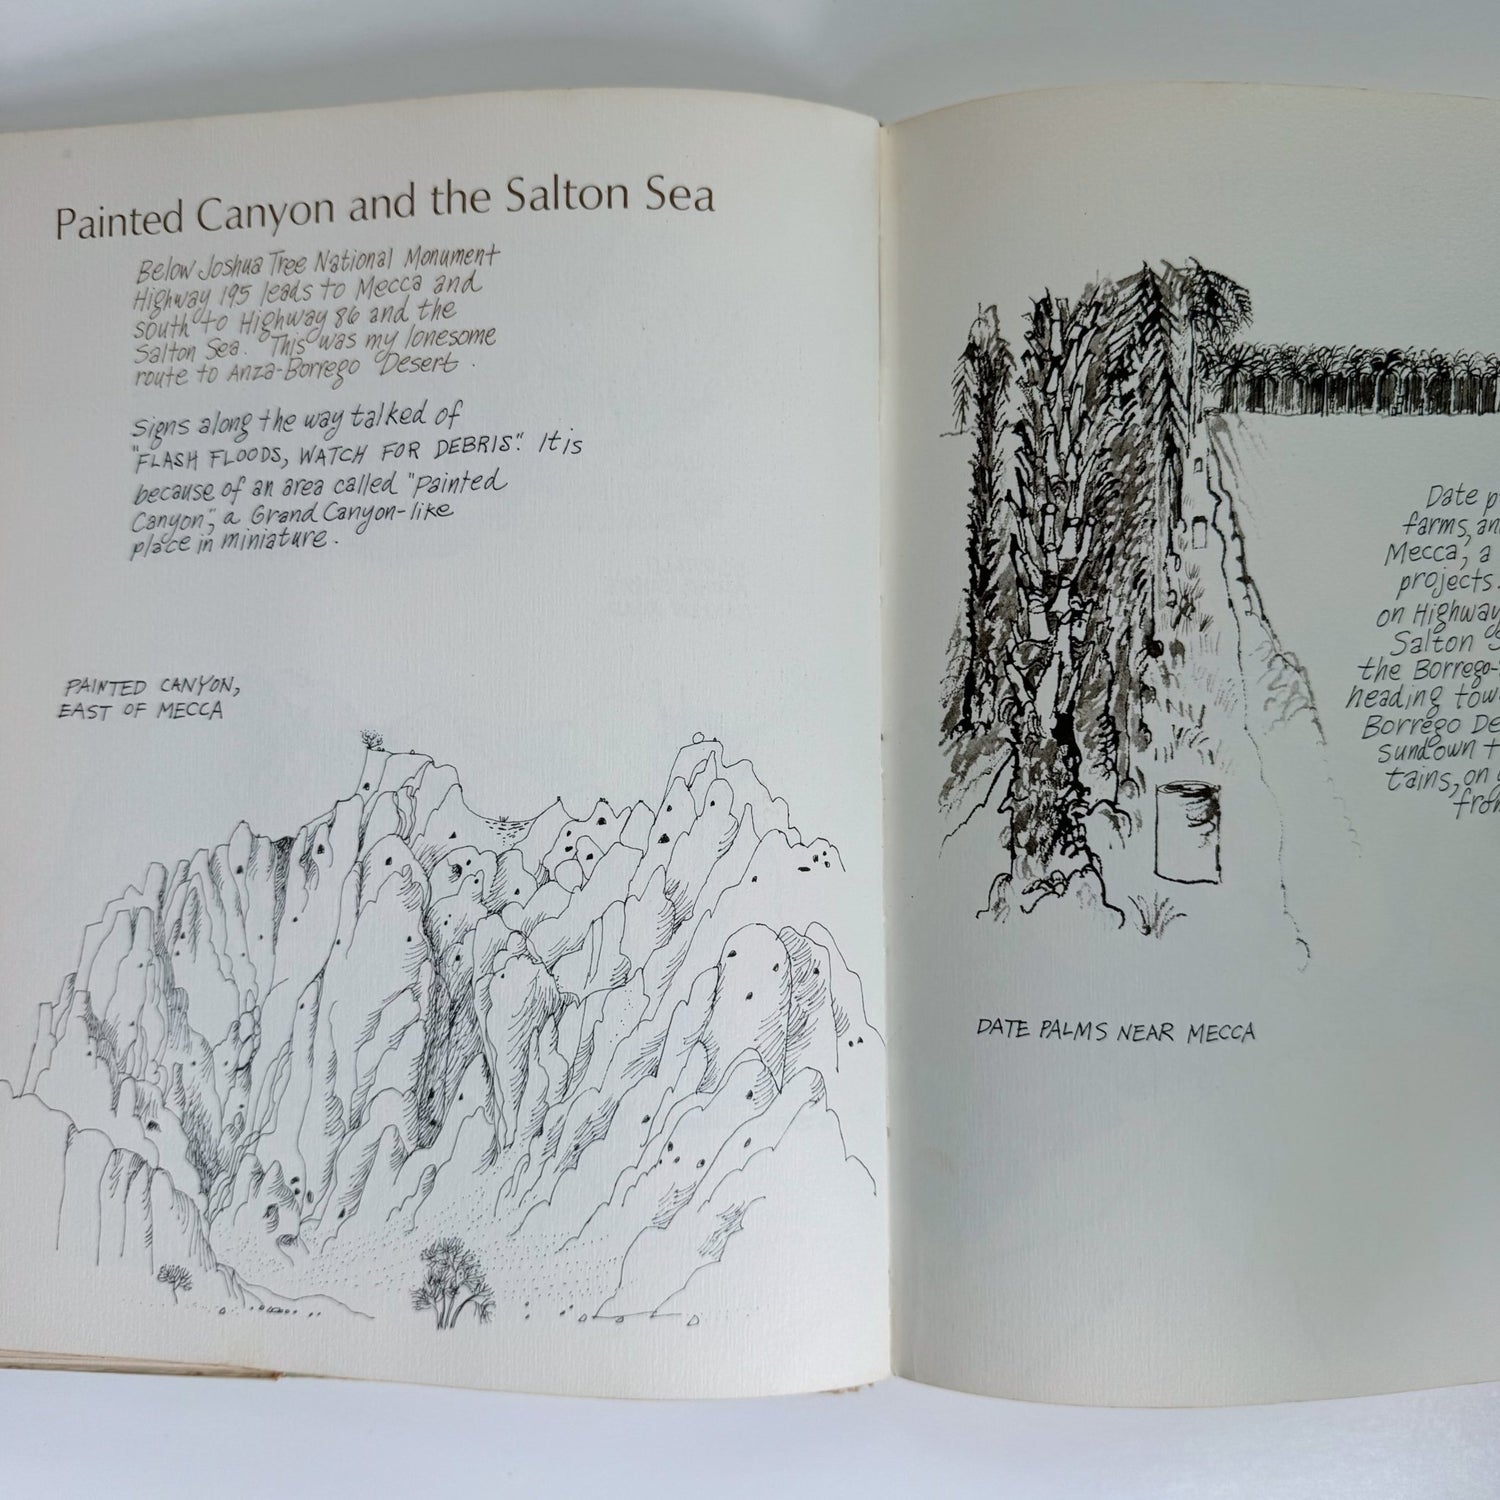 Painted Canyon and the Salton Sea
Below Joshua Tree National Monument
Highway 195 leads to Mecca and
south to Highway 86 and the
Salton Sea. This was my lonesome
route to Anza-Borrego Desert.
Signs along the way talked of
"FLASH FLOODS, WATCH FOR DEBRIS". It is
because of an area called "Painted
Canyon", a Grand Canyon-like
place in miniature.
PAINTED CANYON,
EAST OF MECCA
Date
farms,
Mecca, a
projects.
on Highway
Salton
the Borrego-
heading
Borrego
sundown
tains, on
DATE PALMS NEAR MECCA